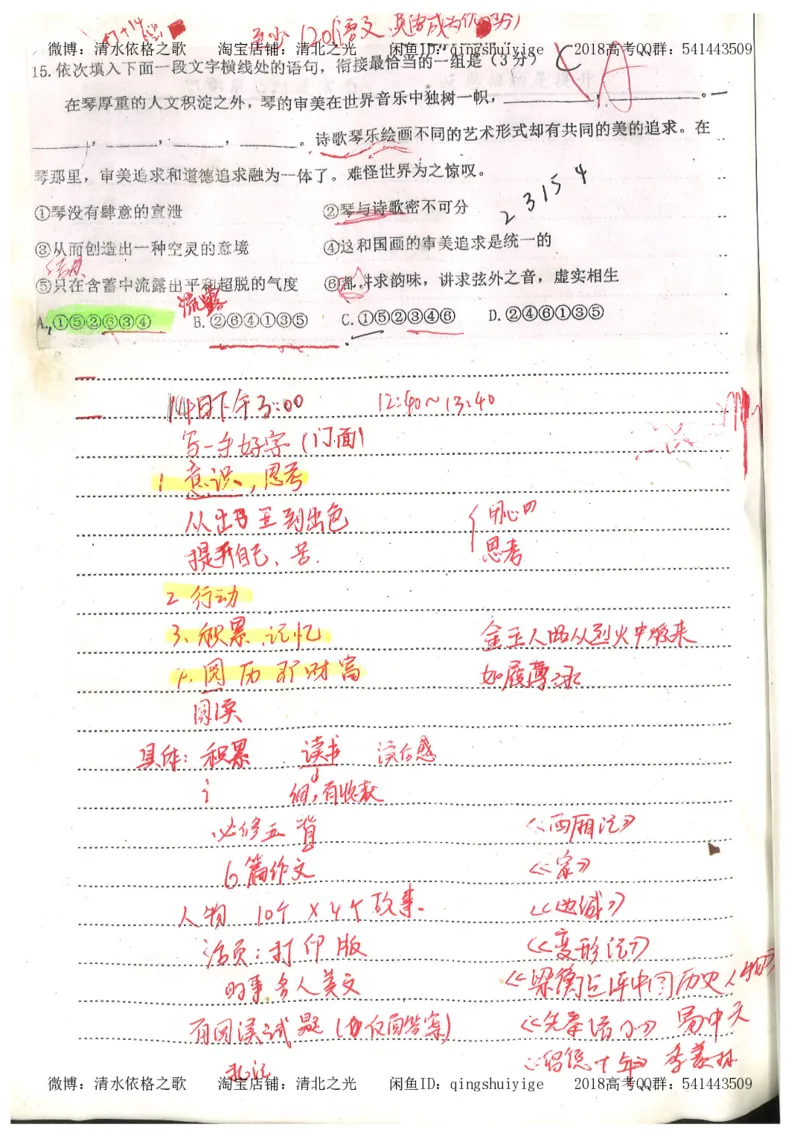 至少120语文
微博：清水依格之歌 淘宝店铺：清北之光 闲鱼ID：qingshuiyige 2018高考QQ群：541443509
15.依次填入下面一段文字横线处的语句，衔接最恰当的一组是（3分） C
在琴厚重的人文积淀之外，琴的审美在世界音乐中独树一帜，________，________。—
____，____，____，____。诗歌琴乐绘画不同的艺术形式却有共同的美的追求。在
琴那里，审美追求和道德追求融为一体了。难怪世界为之惊叹。
23154
①琴没有肆意的宣泄 ②琴与诗歌密不可分
③从而创造出一种空灵的意境 ④这和国画的审美追求是统一的
⑤只在含蓄中流露出平和超脱的气度 ⑥都讲求韵味，讲求弦外之音，虚实相生
流露
A.①⑤②⑥③④ B.②⑥④①③⑤ C.①⑤②③④⑥ D.②④⑥①③⑤
14日下午3:00 12:40~13:40
写一手好字（门面）
1 意识、思考
从出 到出色 用心
提升自己、苦. 思考
2 行动
3、积累、记忆 金玉人 从烈火中 来
4. 阅历即财富 如履薄冰
阅读
具体：积累 读书 演 感
有收获
必修五 背 《西厢记》
6篇作文 《家》
人物 10个×4个故事. 《边城》
活页：打印版 《变形记》
时事 名人美文 《梁衡点评中国历史人物》
有阅读试题（ 答案） 《先秦诸子》 易中天
《留德十年》 季羡林
微博：清水依格之歌 淘宝店铺：清北之光 闲鱼ID：qingshuiyige 2018高考QQ群：541443509